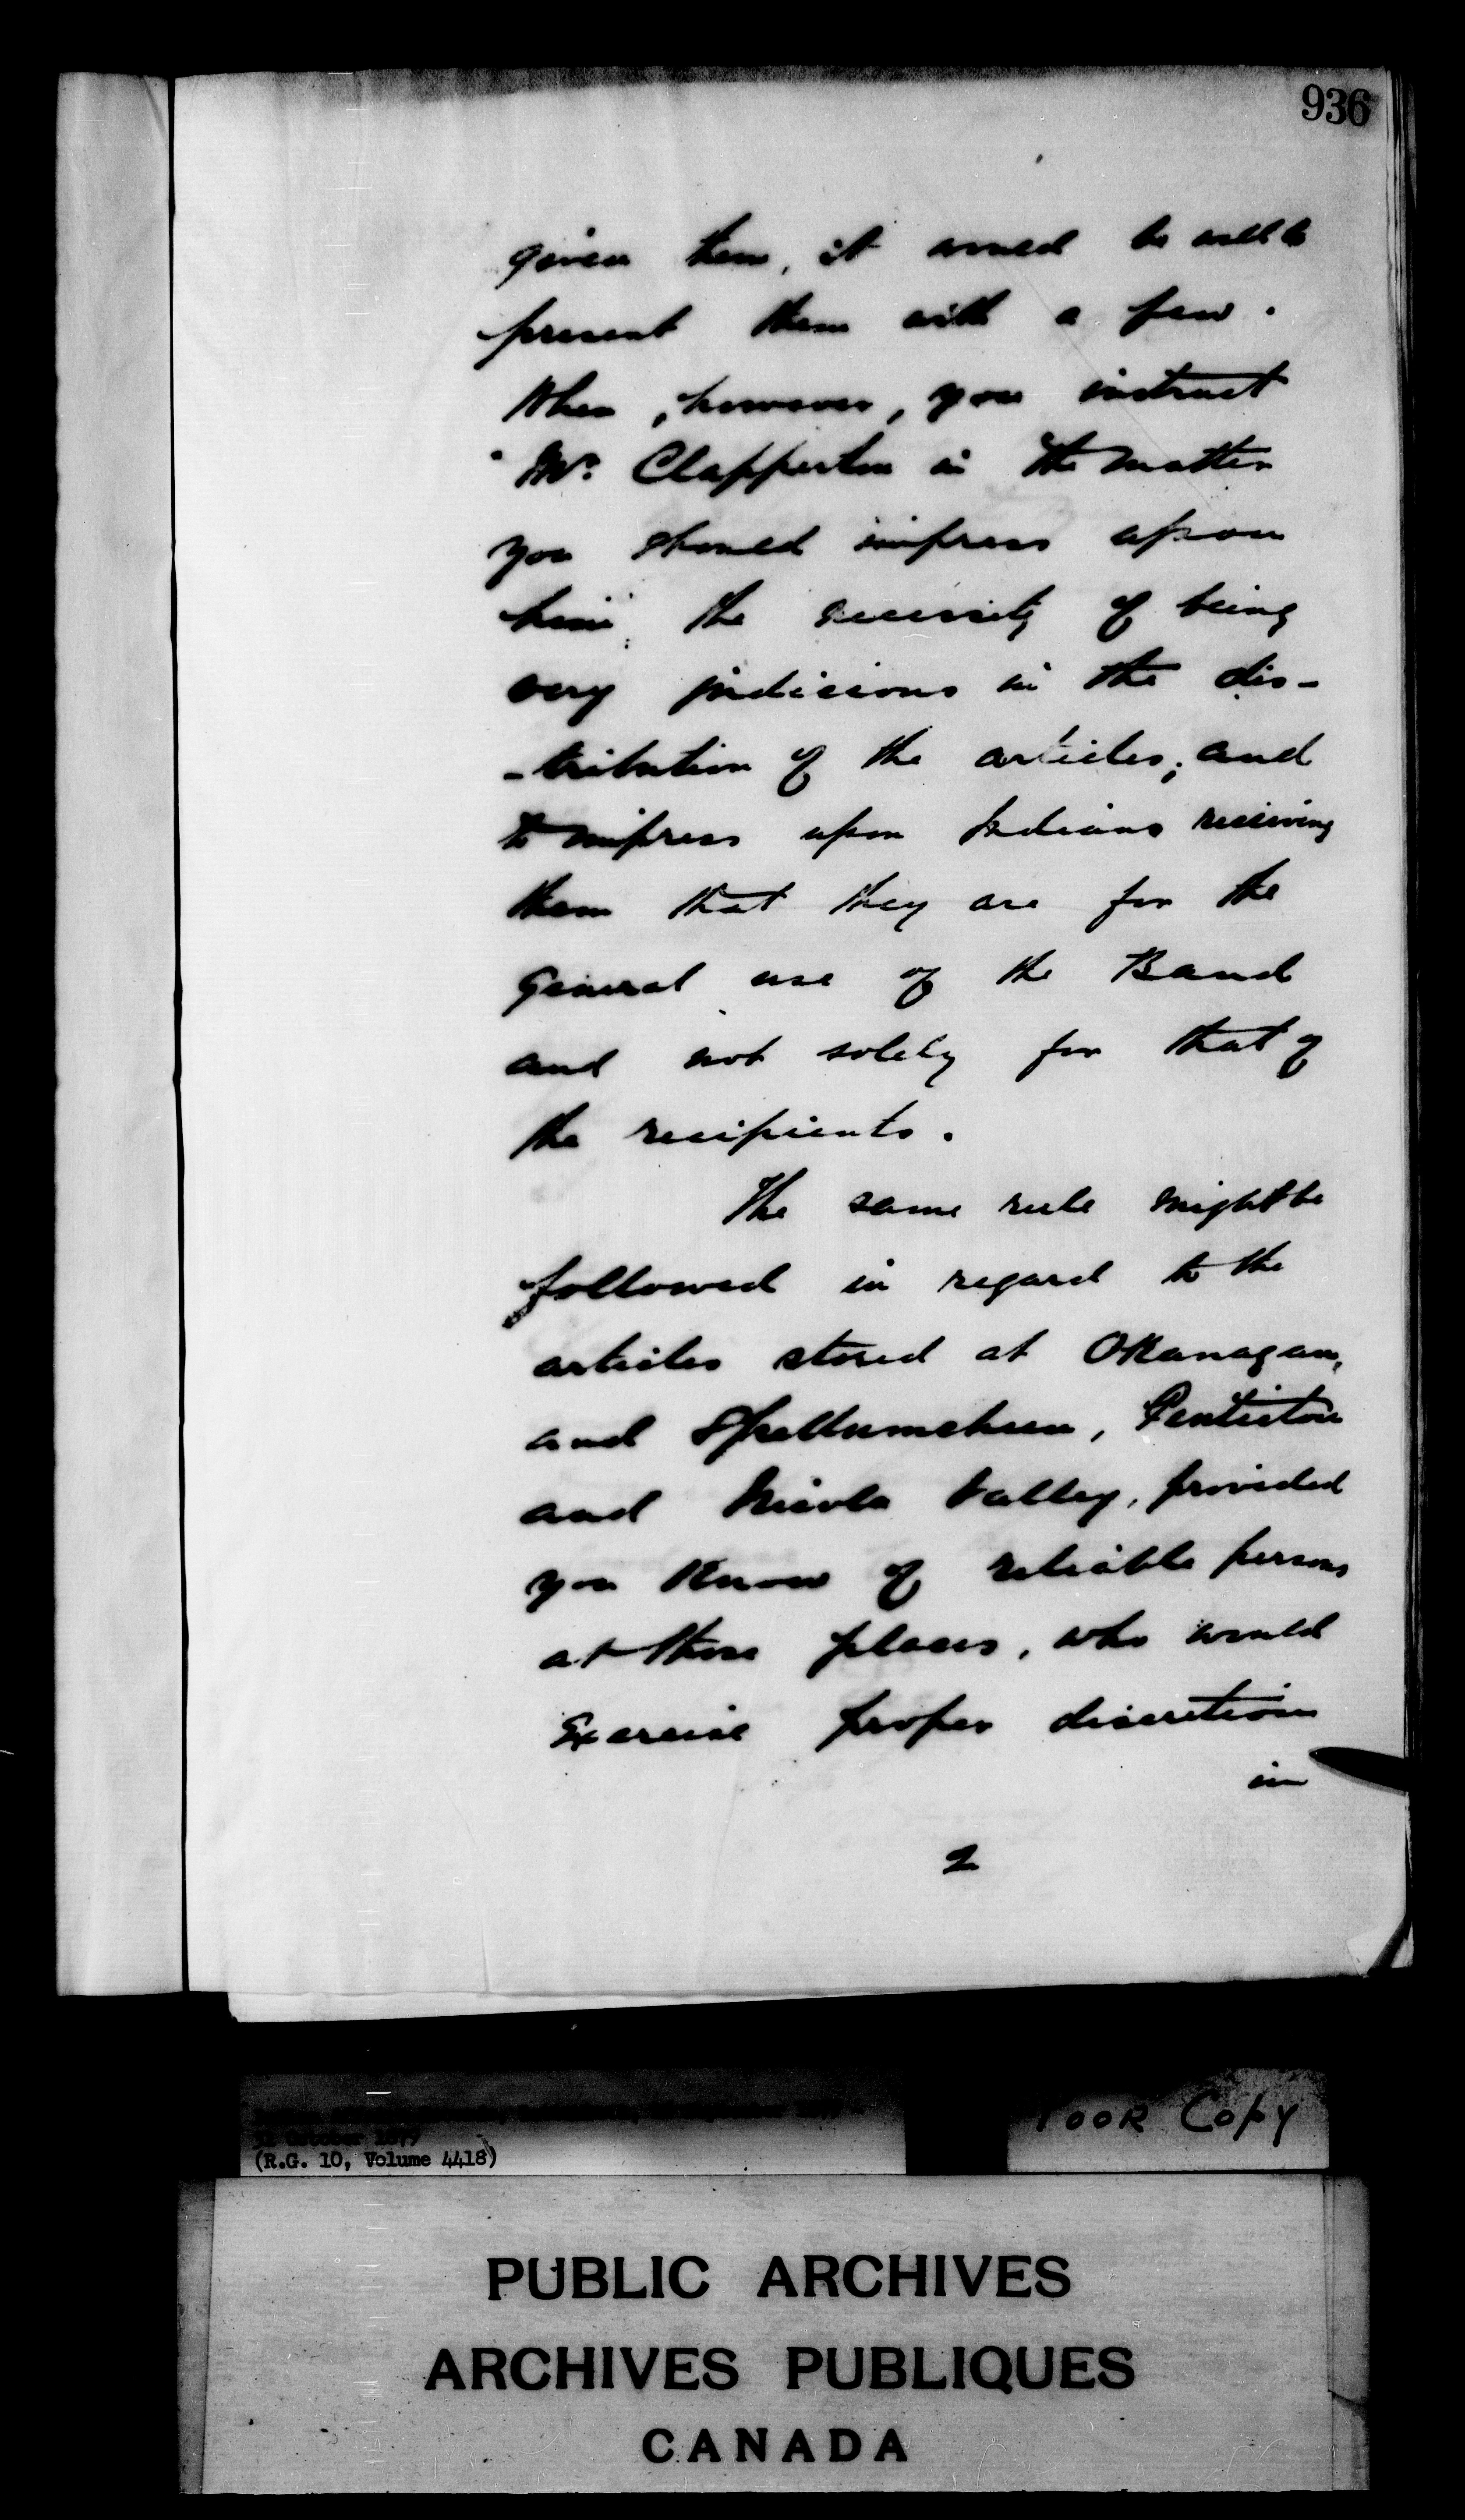 936
given them, it would be well to
present them with a few.
When, however, you instruct
Mr. Clapperton in the matter
you should impress upon
him the necessity of being
very judicious in the dis-
-tribution of the articles; and
to impress upon Indians receiving
them that they are for the
general use of the Band
and not solely for that of
the recipients.
The same rule might be
followed in regard to the
articles stored at Okanagan,
and Spellumcheen, Penticton
and Nicola Valley, provided
you know of reliable persons
at those places, who would
Exercise proper discretion
in
2
October 1877
(R.G. 10, Volume 4418)
POOR COPY
PUBLIC ARCHIVES
ARCHIVES PUBLIQUES
CANADA